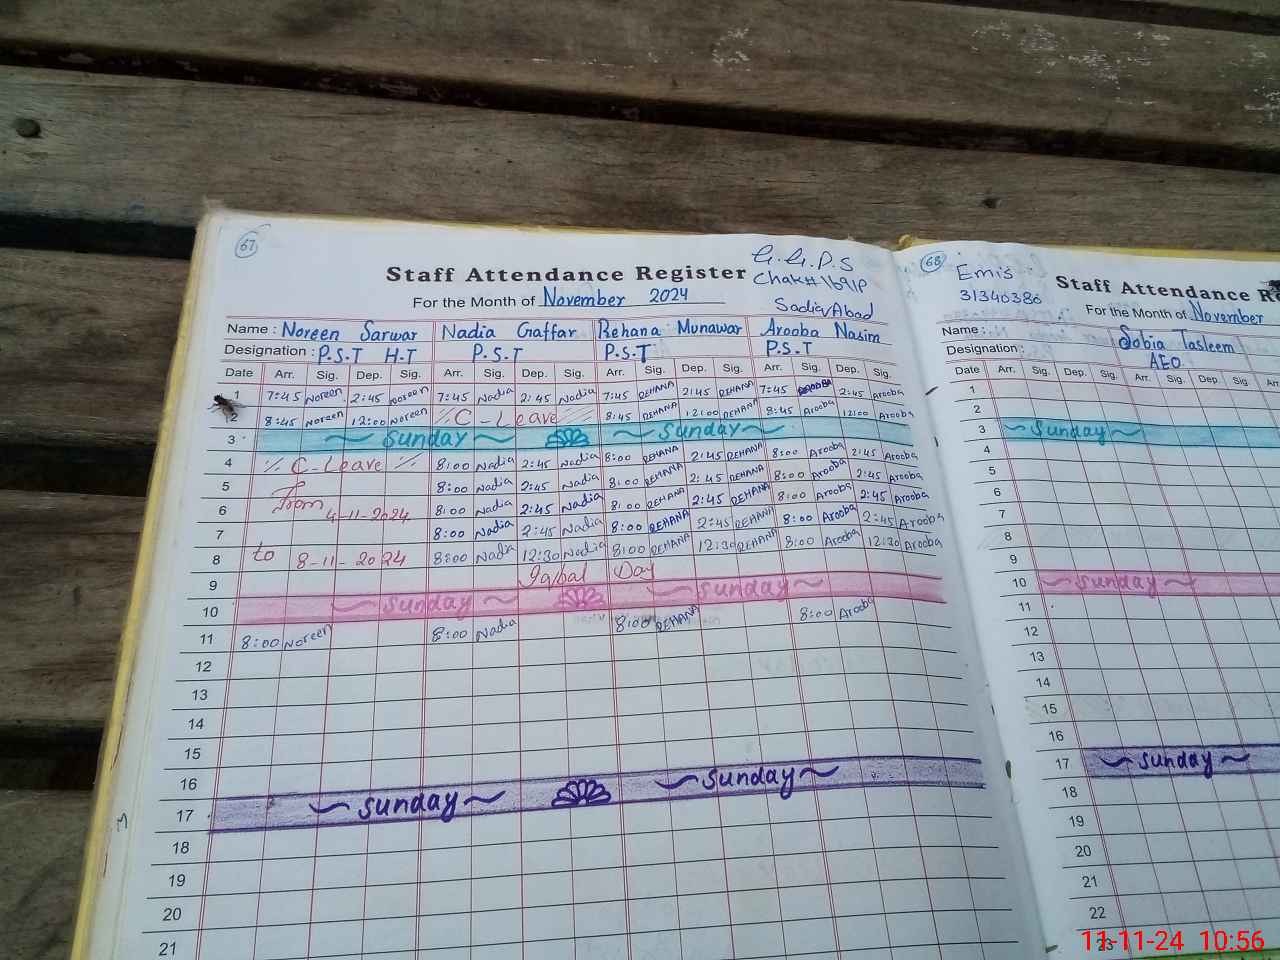 67
G.G.P.S
Chak# 169/P
Sadiq Abad
Staff Attendance Register
For the Month of November 2024
Name : Noreen Sarwar Nadia Gaffar Rehana Munawar Arooba Nasim
Designation : P.S.T H.T P.S.T P.S.T P.S.T
Date Arr. Sig. Dep. Sig. Arr. Sig. Dep. Sig. Arr. Sig. Dep. Sig. Arr. Sig. Dep. Sig.
1 7:45 Noreen 2:45 Noreen 7:45 Nadia 2:45 Nadia 7:45 REHANA 2:45 REHANA 7:45 AROOBA 2:45 Arooba
2 8:45 Noreen 12:00 Noreen C-Leave 8:45 REHANA 12:00 REHANA 8:45 Arooba 12:00 Arooba
3 Sunday Sunday
4 C-Leave 8:00 Nadia 2:45 Nadia 8:00 REHANA 2:45 REHANA 8:00 Arooba 2:45 Arooba
5 From 8:00 Nadia 2:45 Nadia 8:00 REHANA 2:45 REHANA 8:00 Arooba 2:45 Arooba
6 4-11-2024 8:00 Nadia 2:45 Nadia 8:00 REHANA 2:45 REHANA 8:00 Arooba 2:45 Arooba
7 8:00 Nadia 2:45 Nadia 8:00 REHANA 2:45 REHANA 8:00 Arooba 2:45 Arooba
8 to 8-11-2024 8:00 Nadia 12:30 Nadia 8:00 REHANA 12:30 REHANA 8:00 Arooba 12:30 Arooba
9 Iqbal Day
10 Sunday Sunday
11 8:00 Noreen 8:00 Nadia 8:00 REHANA 8:00 Arooba
12
13
14
15
16
17 Sunday Sunday
18
19
20
21
68
Emis
31340380
Staff Attendance
For the Month of November
Name : Sobia Tasleem
Designation : AEO
Date Arr. Sig. Dep. Sig. Arr. Sig. Dep. Sig.
1
2
3 Sunday
4
5
6
7
8
9
10 Sunday
11
12
13
14
15
16
17 Sunday
18
19
20
21
22
23
11-11-24 10:56